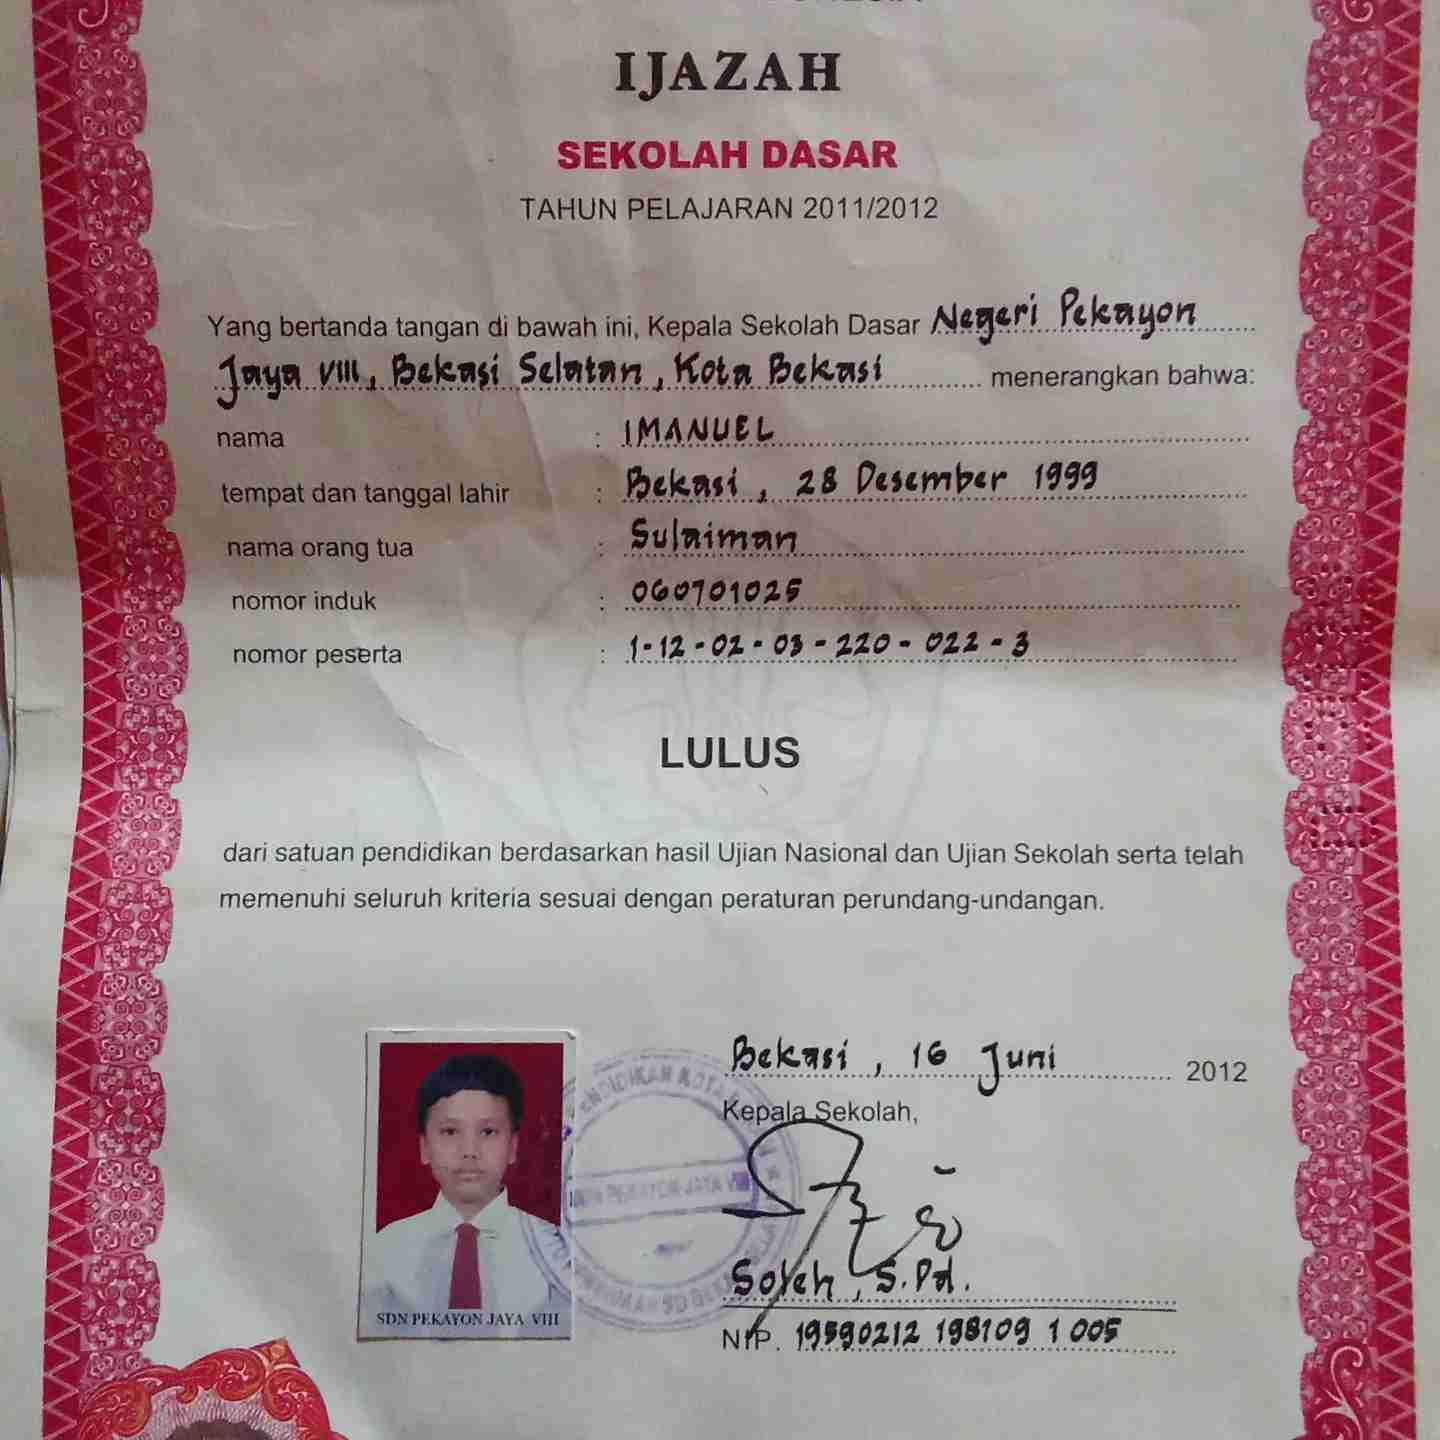 IJAZAH
SEKOLAH DASAR
TAHUN PELAJARAN 2011/2012
Yang bertanda tangan di bawah ini, Kepala Sekolah Dasar Negeri Pekayon
Jaya VIII, Bekasi Selatan, Kota Bekasi menerangkan bahwa:
nama : IMANUEL
tempat dan tanggal lahir : Bekasi, 28 Desember 1999
nama orang tua : Sulaiman
nomor induk : 060701025
nomor peserta : 1-12-02-03-220-022-3
LULUS
dari satuan pendidikan berdasarkan hasil Ujian Nasional dan Ujian Sekolah serta telah
memenuhi seluruh kriteria sesuai dengan peraturan perundang-undangan.
Bekasi, 16 Juni 2012
Kepala Sekolah,
PEKAYON JAYA VIII
Soleh, S.Pd.
SDN PEKAYON JAYA VIII
NIP. 19590212 198109 1 005